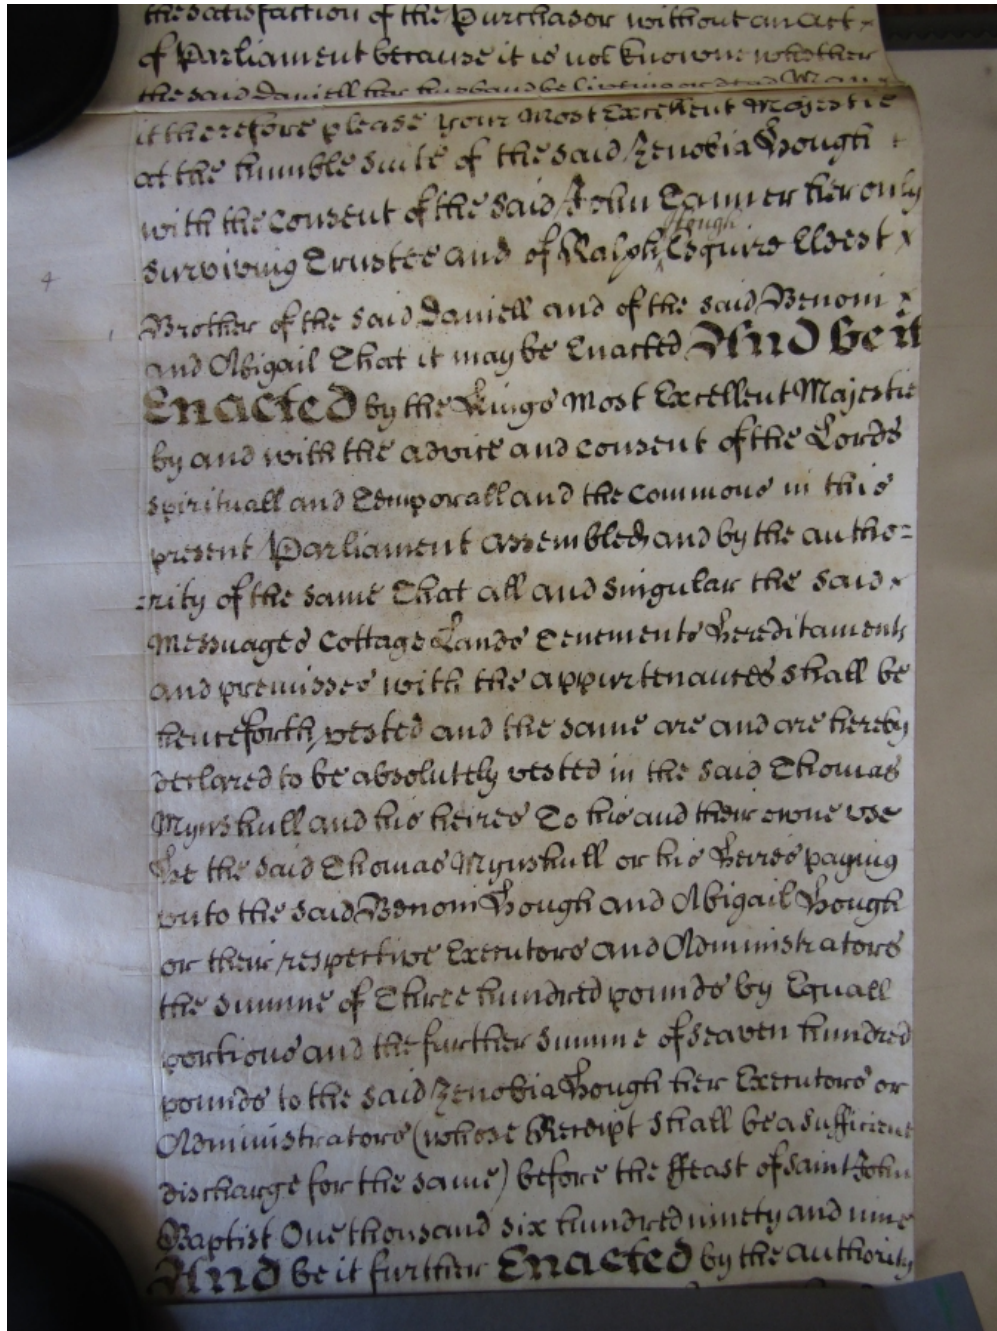 the satisfaction of the Purchasor without an Act
of Parliament because it is not knowne whether
the said Daniell her husband be liveing or dead May
it therefore please your Most Excellent Majestie
at the humble Suite of the said Zenobia Hough
with the Consent of the said John Tanner her only
Hough
surviving Trustee and of Ralph Esquire Eldest
Brother of the said Daniell and of the said Benoni
and Abigail That it may be Enacted And be it
Enacted by the Kings Most Excellent Majestie
by and with the advice and Consent of the Lords
Spirituall and Temporall and the Commons in this
present Parliament assembled and by the autho=
=rity of the same That all and singular the said
Messuages Cottage Lands Tenements Hereditaments
and premisses with the appurtenances shall be
henceforth vested and the same are and are hereby
declared to be absolutely vested in the said Thomas
Mynshull and his heires To his and their owne use
He the said Thomas Mynshull or his Heires paying
unto the said Benoni Hough and Abigail Hough
or their respective Executors and Administrators
the Summe of Three hundred pounds by Equall
portions and the further Summe of seaven hundred
pounds to the said Zenobia Hough her Executors or
Administrators (whose Receipt shall be a sufficient
discharge for the same) before the ffeast of Saint John
Baptist One thousand six hundred ninety and nine
And be it further Enacted by the authority